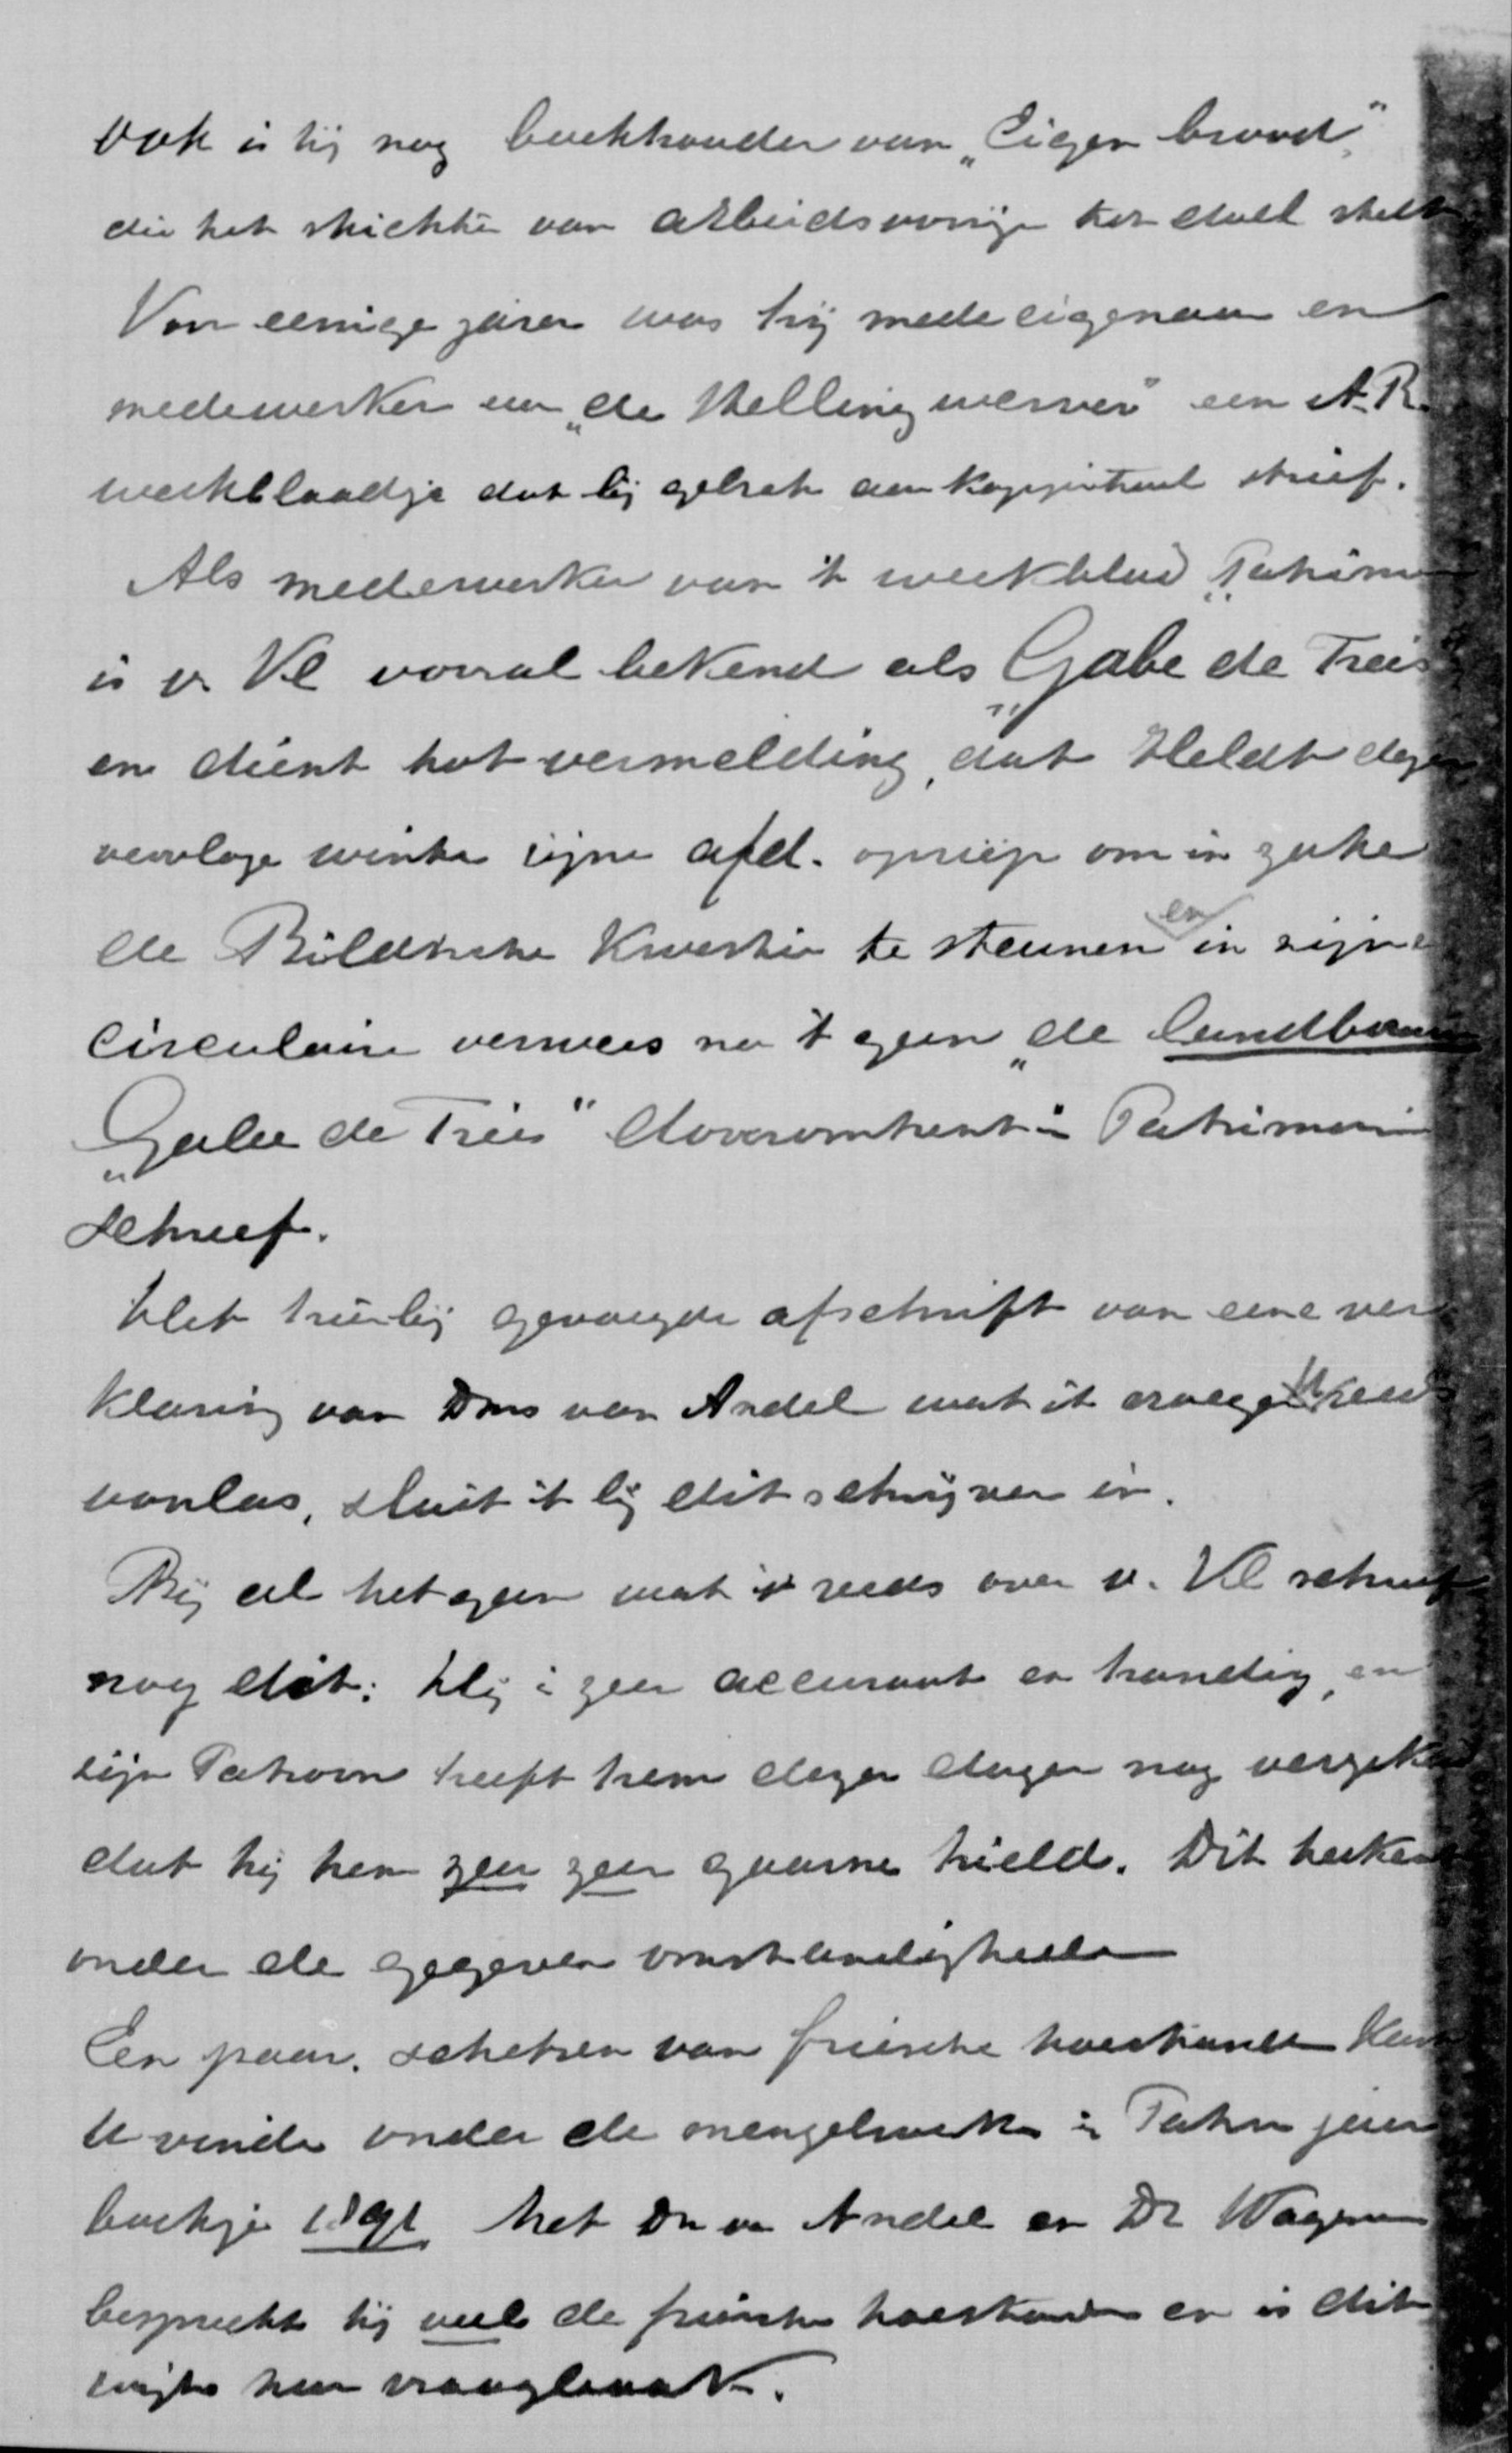 ook is hij nog boekhouder van „Eigen brood”
die het stichten van arbeidswoningen ten doel stelt
Voor eenige jaren was hij mede eigenaar en
medewerker van „de Stellingwerver” een A.R.
weekblaadje dat bij gebrek aan kappitaal stierf.
Als medewerker van 't weekblad „Patrim
is v. Vl vooral bekend als „Gabe de Tries
en dient hot vermelding, dat Heldt
winter zijne afd. opriep om in zake
de Bildtsche Kwestie te steunen en in zijne
circulaire verwees na 't geen „de landbouw
„Gabe de Tries” daaromtrent in Patrimoni
schreef.
Het hierbij gevoegde afschrift van eene ver
klaring van Dms van Andel wat ik U reeds
voorlas, sluit ik bij dit schrijven in.
Bij al het geen wat ik reeds over v. Vl schreef
nog dit: Hij is zeer accuraat en handig, en
zijn Patroon heeft hem dezer dagen nog
dat hij hem zeer zeer gaarne hield. Dit
onder de gegeven omstandigheden
Een paar schetsen van friesche toestanden kan
U vinden onder de mengelwerken in Patrm jaar
boekje 1891 Met Dn van Andel en Dr Wagenaar
bespreekt hij veel de friesche toestanden en is dit
hun vraagbaak.